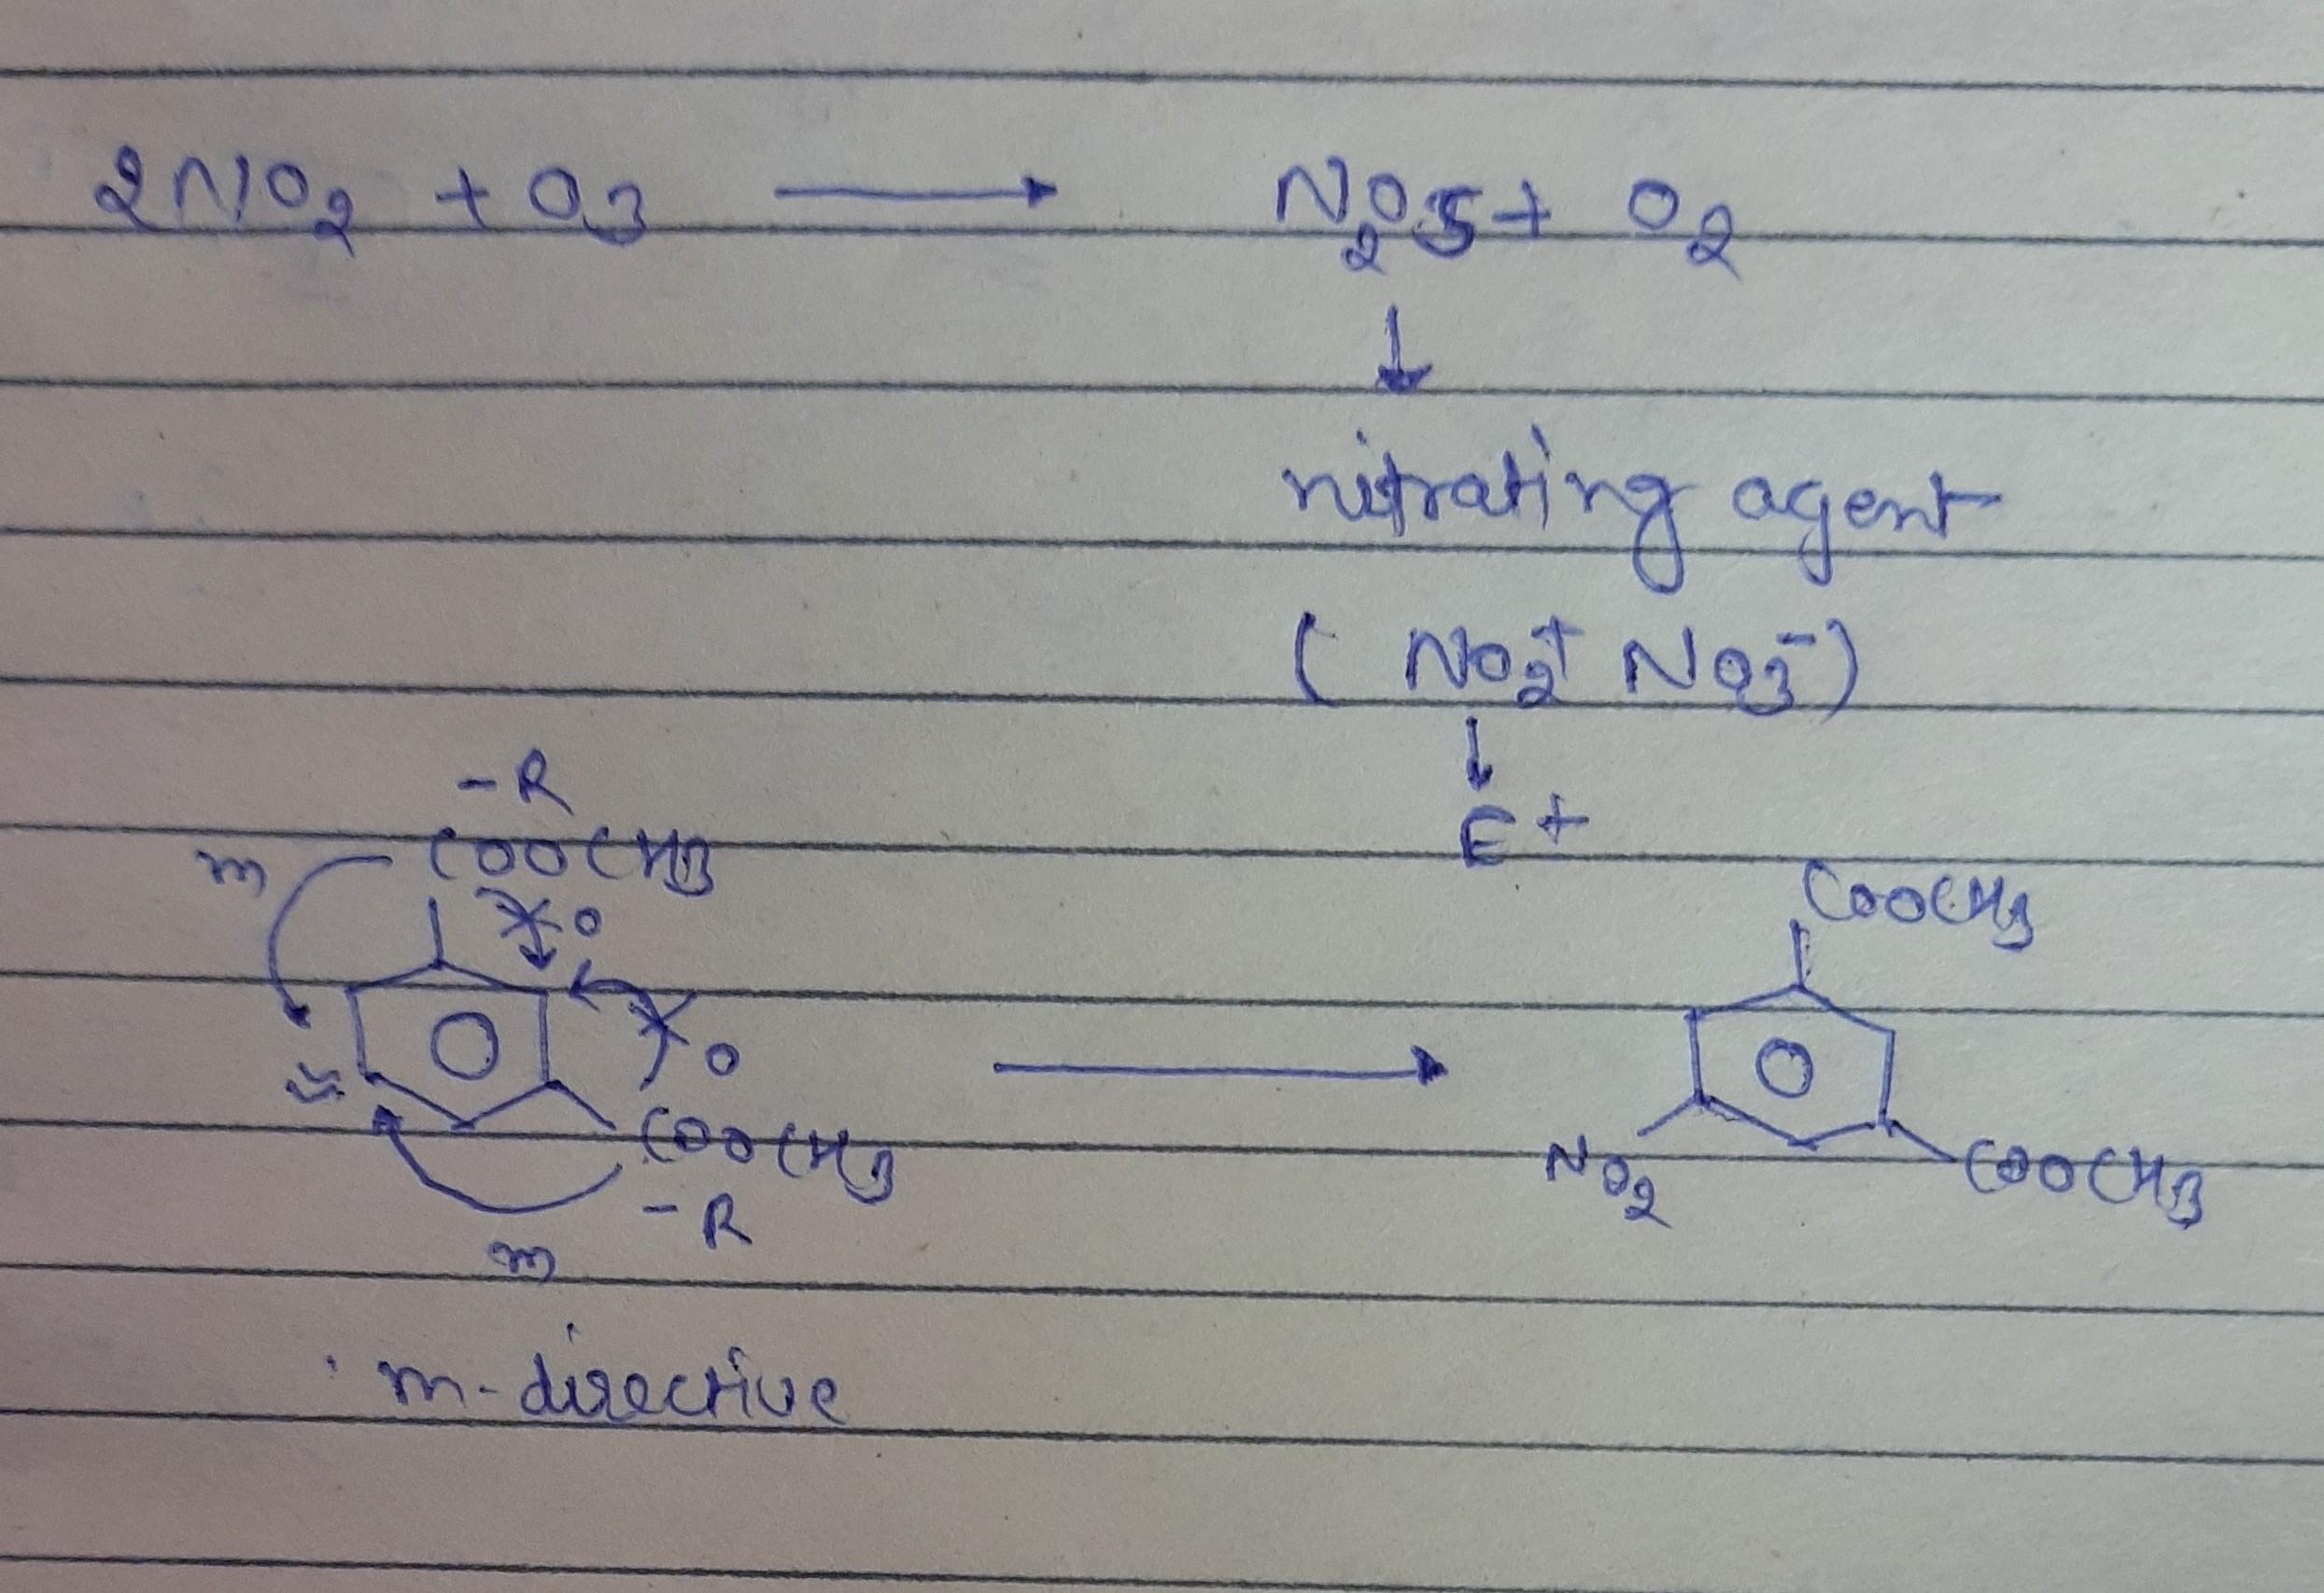 2NO₂ + O₃ ⟶ N₂O₅ + O₂
↓
nitrating agent
( NO₂⁺ NO₃⁻ )
↓
E⁺
-R
m COOCH₃
o
COOCH₃
o
COOCH₃
NO₂ COOCH₃
-R
m
m-directive